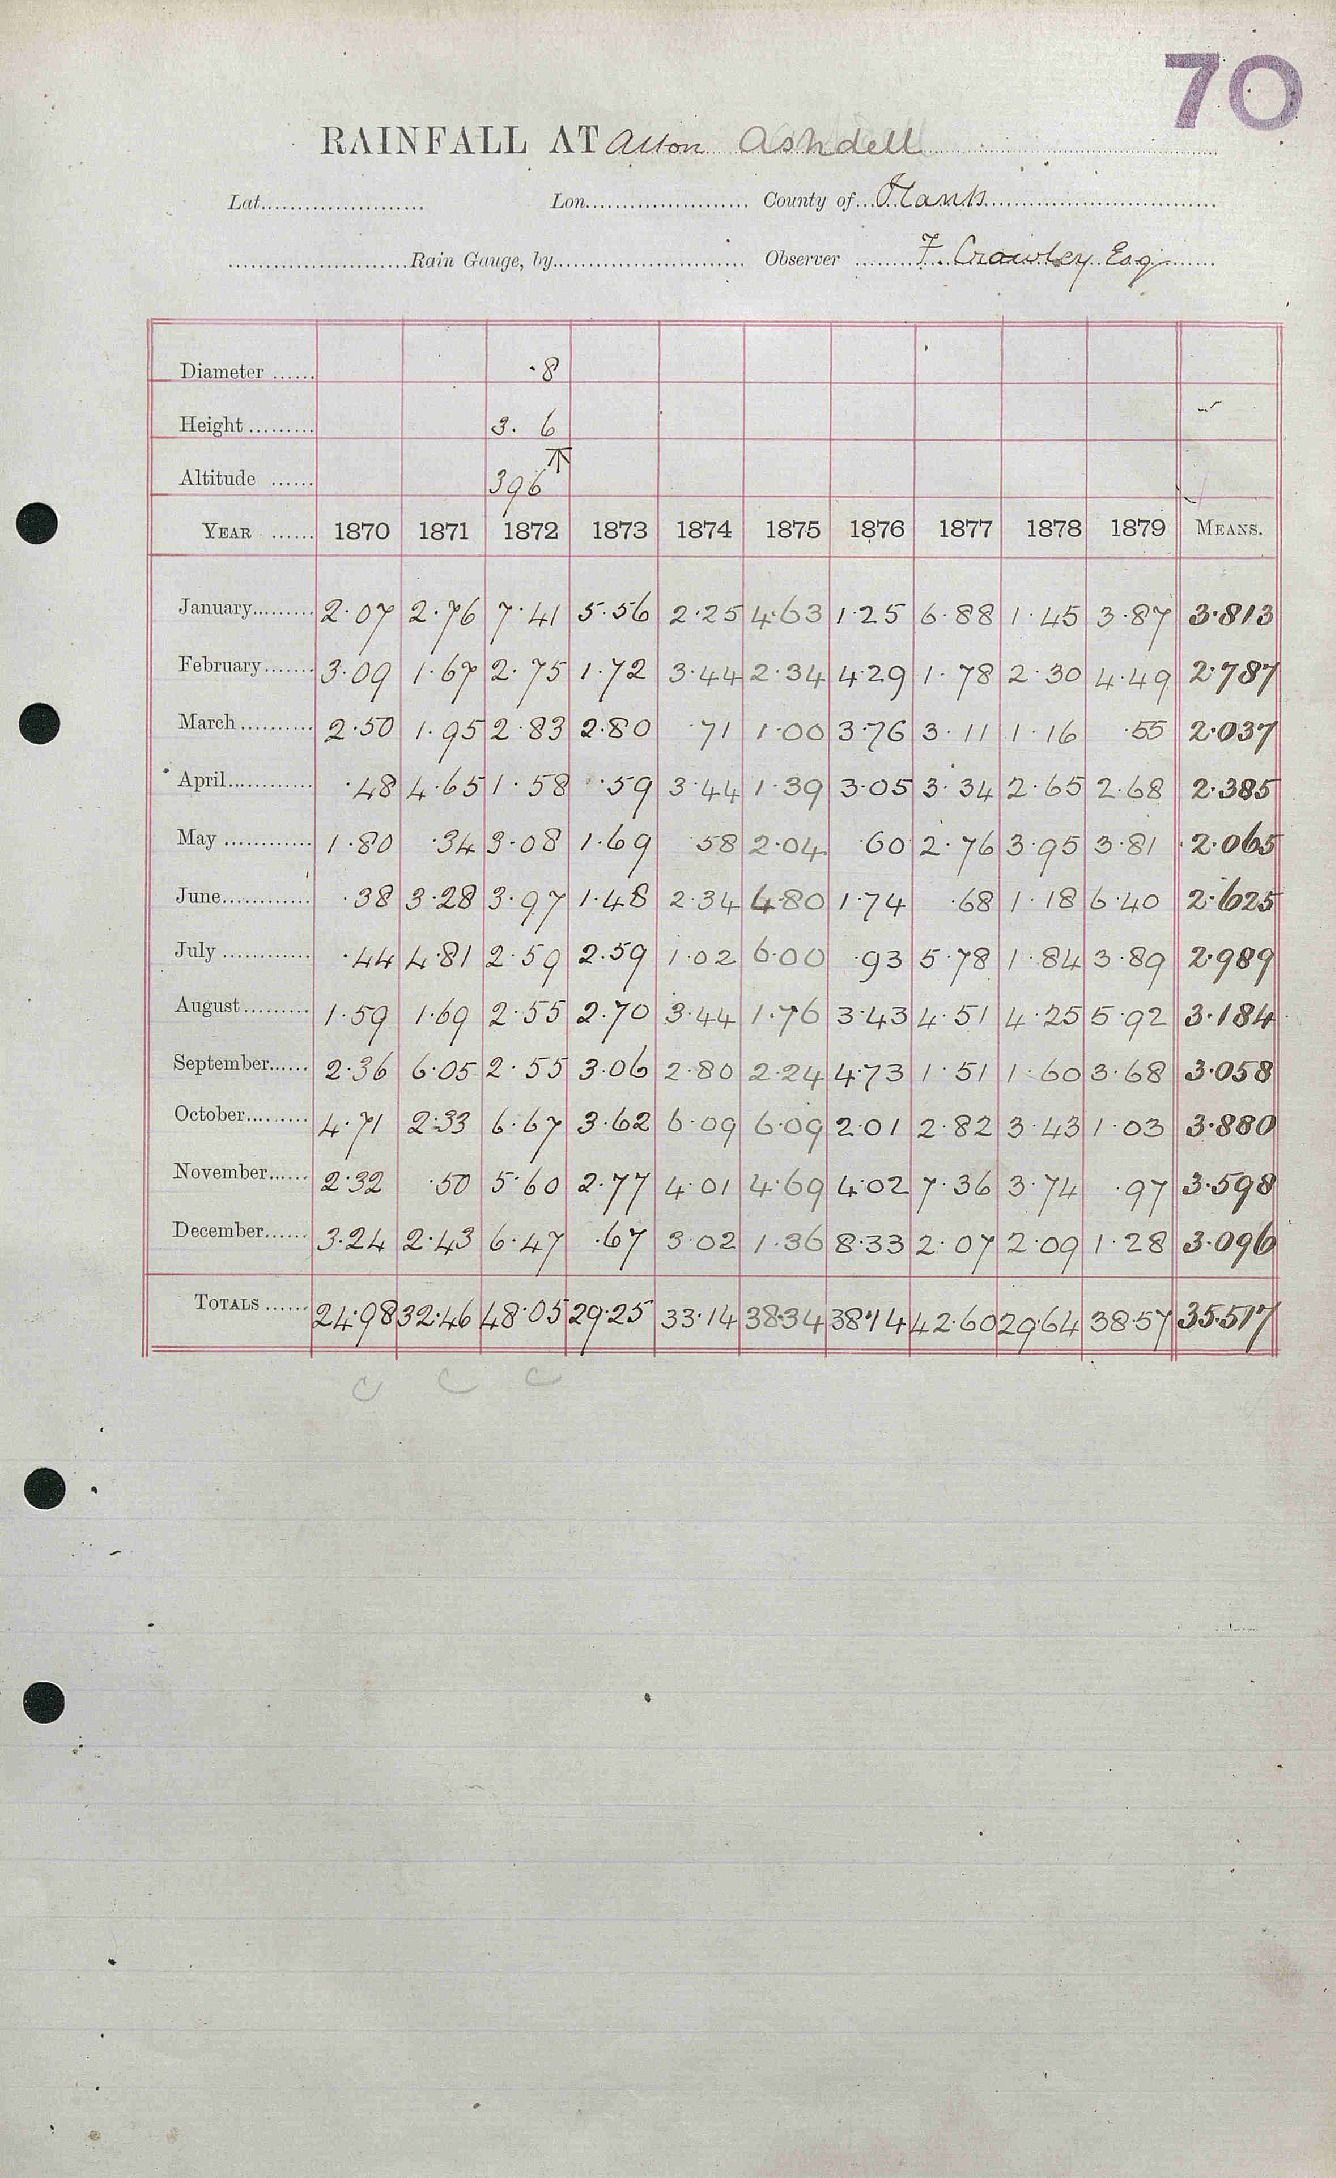 70
RAINFALL AT Alton Ashdell
Lat. Lon. County of Hants
Rain Gauge, by Observer F. Crawley Esq
Diameter ·8
Height 3. 6
Altitude 396
YEAR 1870 1871 1872 1873 1874 1875 1876 1877 1878 1879 MEANS.
January 2·07 2·76 7·41 5·56 2·25 4·63 1·25 6·88 1·45 3·87 3·813
February 3·09 1·67 2·75 1·72 3·44 2·34 4·29 1·78 2·30 4·49 2·787
March 2·50 1·95 2·83 2·80 ·71 1·00 3·76 3·11 1·16 ·55 2·037
April ·48 4·65 1·58 ·59 3·44 1·39 3·05 3·34 2·65 2·68 2·385
May 1·80 ·34 3·08 1·69 ·58 2·04 ·60 2·76 3·95 3·81 2·065
June ·38 3·28 3·97 1·48 2·34 4·80 1·74 ·68 1·18 6·40 2·625
July ·44 4·81 2·59 2·59 1·02 6·00 ·93 5·78 1·84 3·89 2·989
August 1·59 1·69 2·55 2·70 3·44 1·76 3·43 4·51 4·25 5·92 3·184
September 2·36 6·05 2·55 3·06 2·80 2·24 4·73 1·51 1·60 3·68 3·058
October 4·71 2·33 6·67 3·62 6·09 6·09 2·01 2·82 3·43 1·03 3·880
November 2·32 ·50 5·60 2·77 4·01 4·69 4·02 7·36 3·74 ·97 3·598
December 3·24 2·43 6·47 ·67 3·02 1·36 8·33 2·07 2·09 1·28 3·096
TOTALS 24·98 32·46 48·05 29·25 33·14 38·34 38·14 42·60 29·64 38·57 35·517
C C C